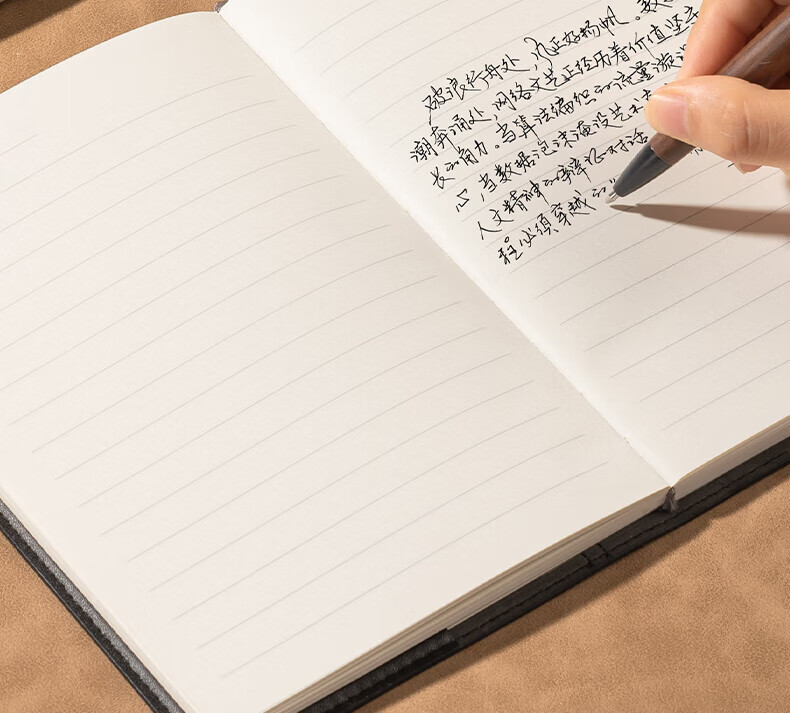 破浪行舟处，风正好扬帆。数
潮奔涌处，网络文艺正经历着价值坚守
长的角力。当算法编织的流量漩涡
心，当数据泡沫淹没艺术
人文精神的辩证对话
程必须穿越的